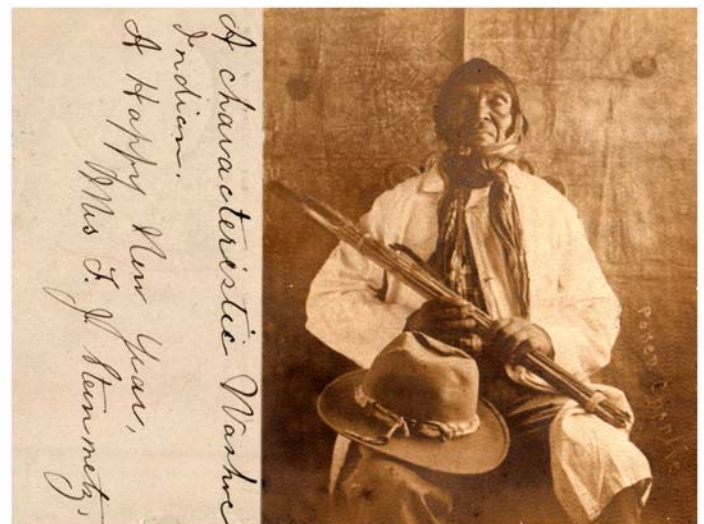 A characteristic Washoe
Indian.
A Happy New Year,
Mrs F. J. Steinmetz,